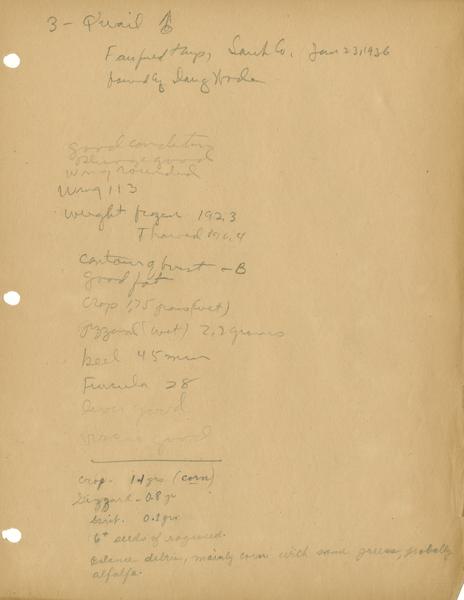 3 - Quail
Fairfield Twp, Sauk Co. Jan 23, 1936
found by Doug Worden
good condition
plumage good
wing rounded
Wing 113
weight frozen 192.3
Thawed
contour of breast - B
good fat
Crop 1.75 grams (wet)
gizzard (wet) 2.2 grams
keel 45 mm
Furcula 28
liver good
good
crop. 1.1 grs (corn)
Gizzard - 0.8 gr
Grit. 0.3 grs
6+ seeds of ragweed.
Balance debris, mainly corn with some greens, probably
alfalfa.